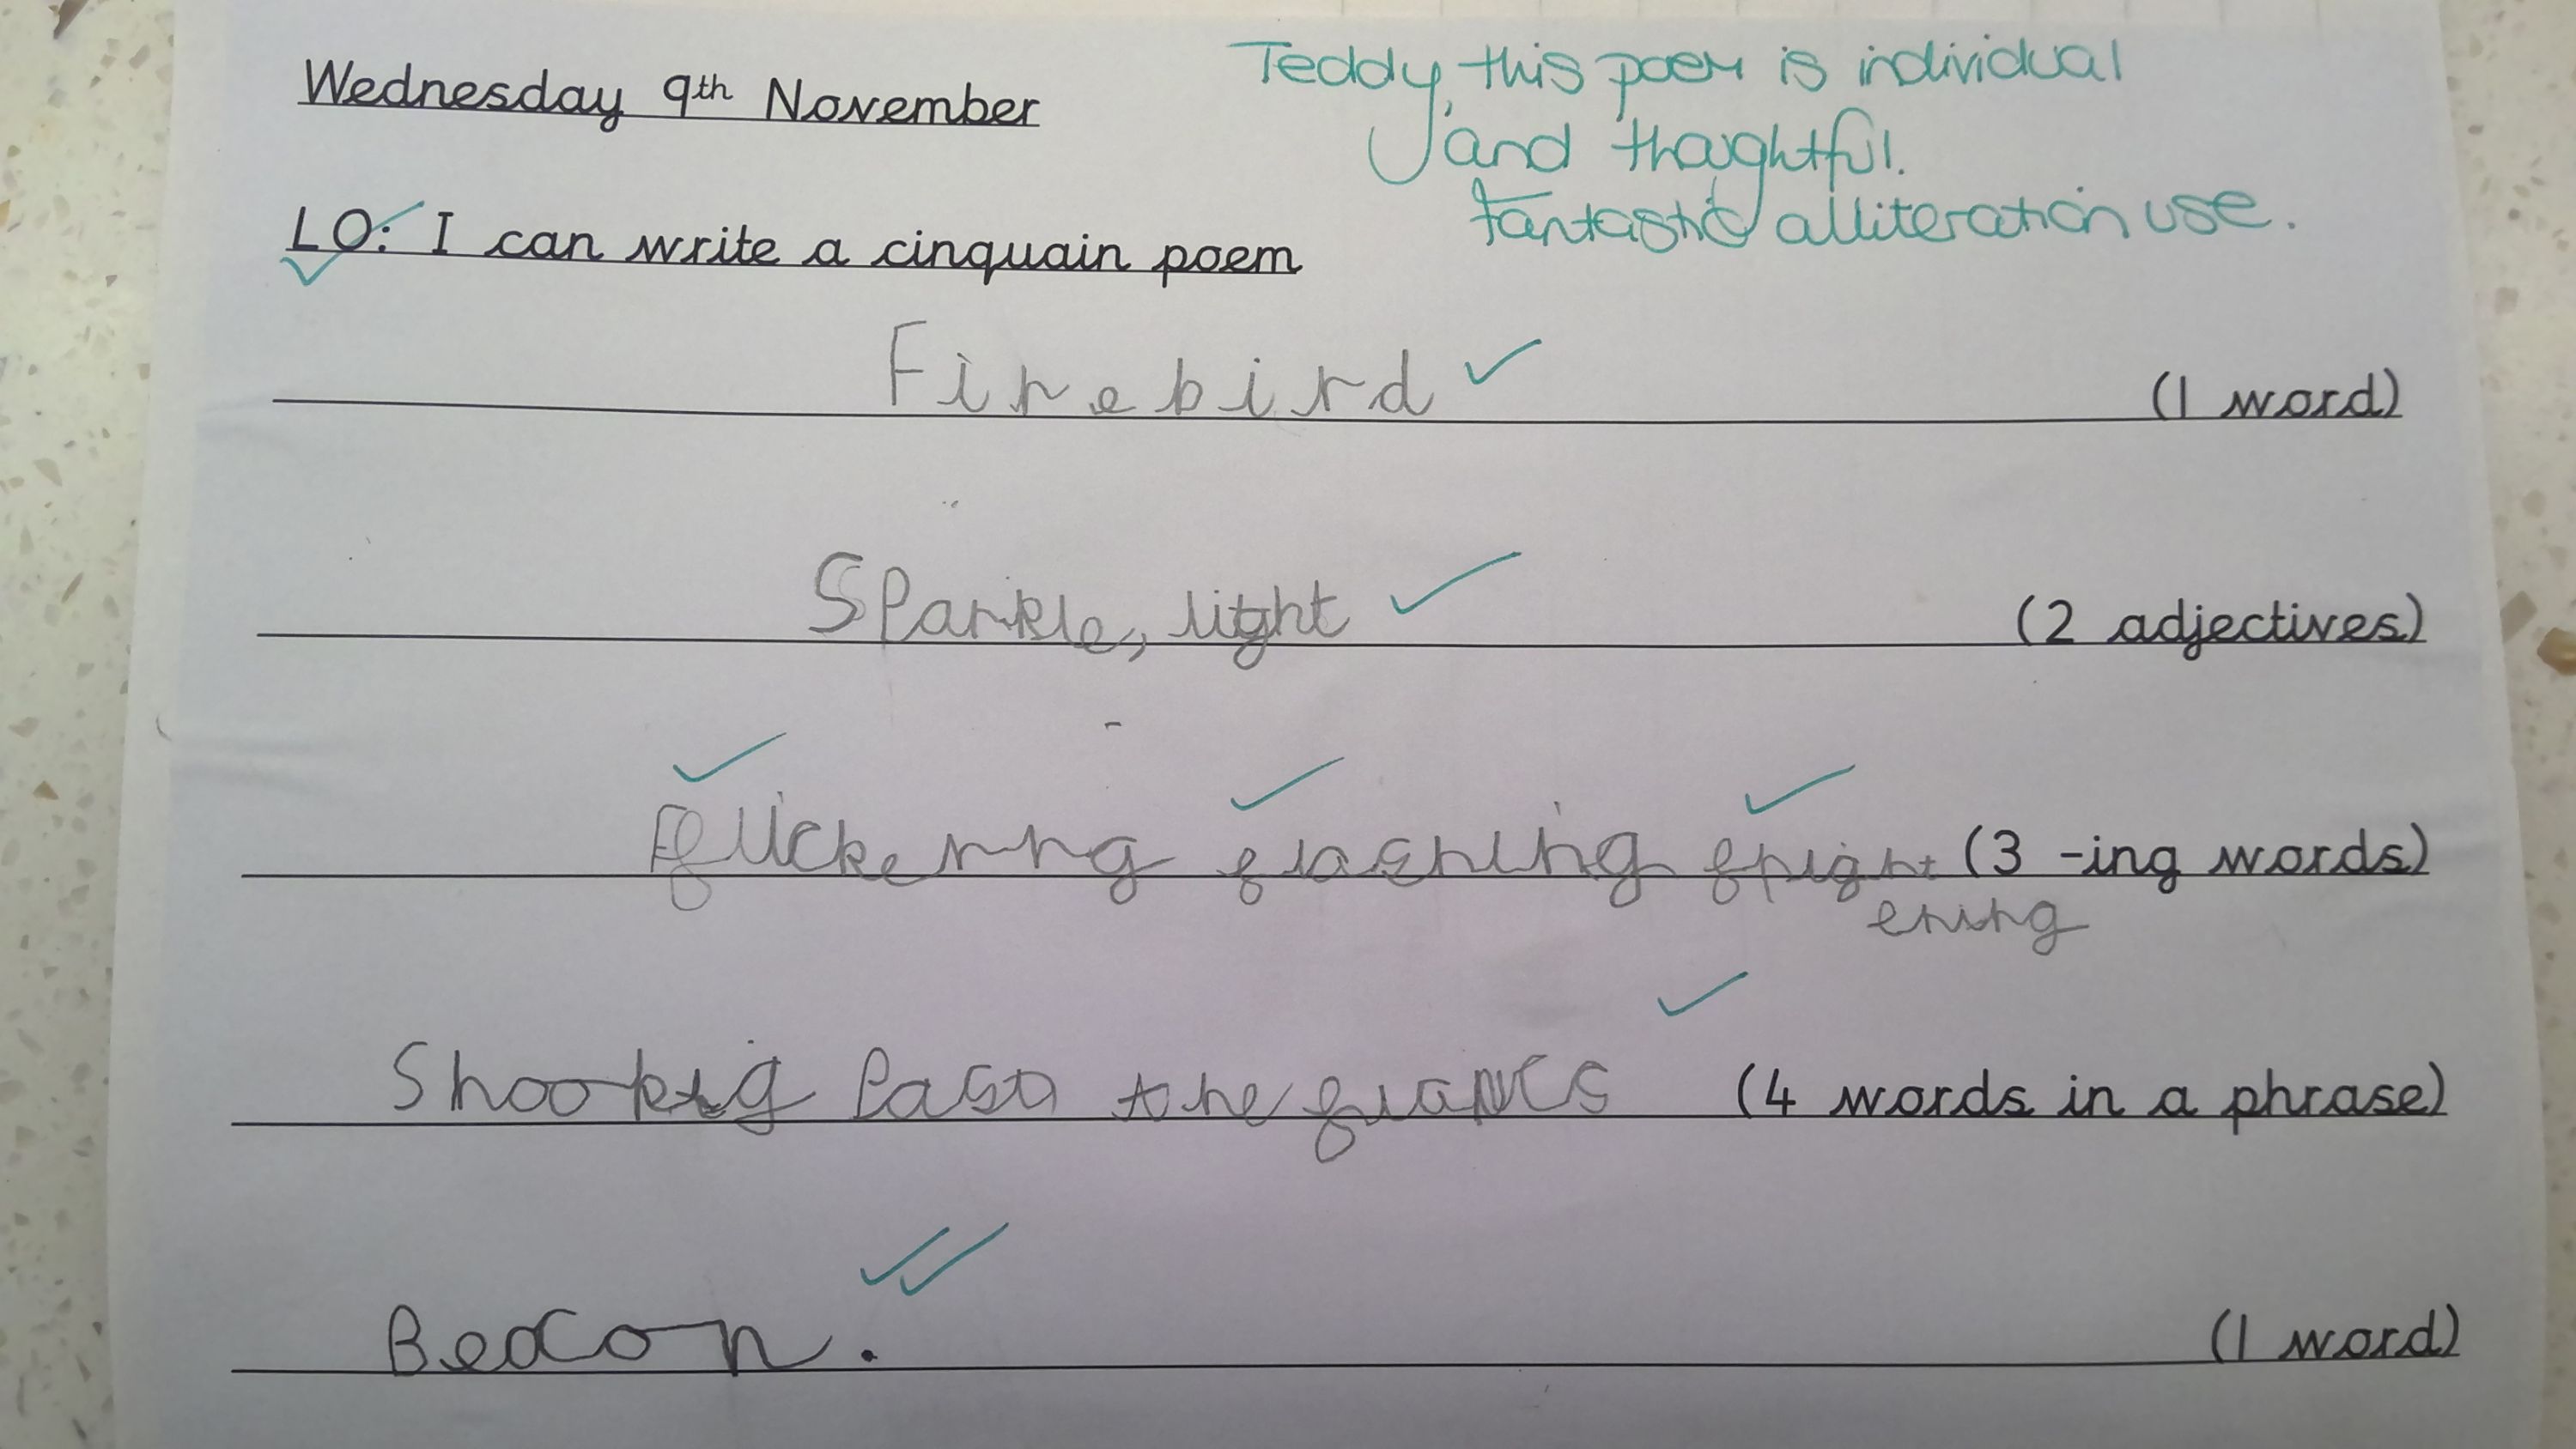 Wednesday 9th November
Teddy, this poem is individual
and thoughtful.
Fantastic alliteration use.
LO: I can write a cinquain poem
Firebird (1 word)
Sparkle, light (2 adjectives)
flickering flashing fright (3 -ing words)
ening
Shooting Past the (4 words in a phrase)
Beacon. (1 word)